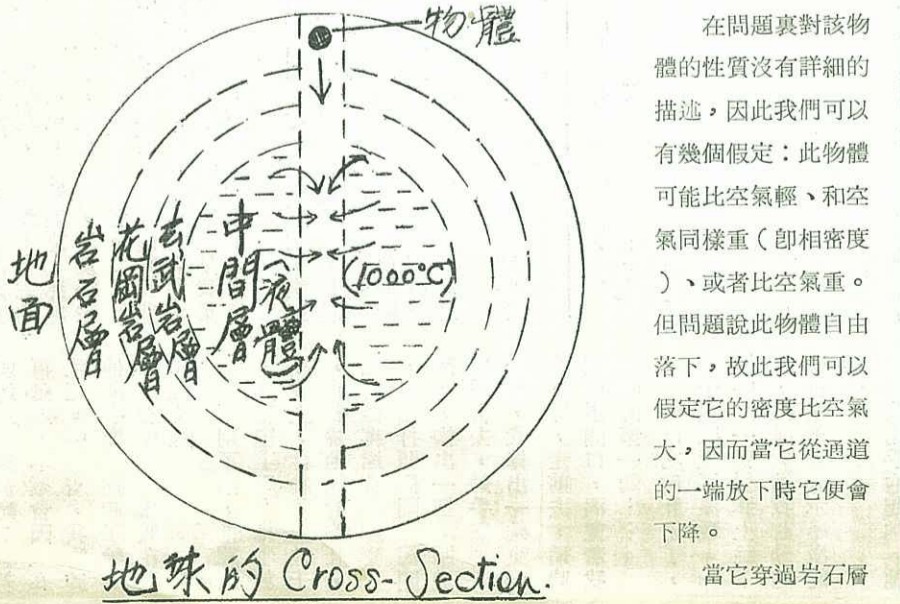 物體
地面
岩石層
花岡岩層
玄武岩層
中間層
(液體)
(1000°C)
地球的 Cross-Section.
在問題裏對該物
體的性質沒有詳細的
描述，因此我們可以
有幾個假定：此物體
可能比空氣輕、和空
氣同樣重（卽相密度
）、或者比空氣重。
但問題說此物體自由
落下，故此我們可以
假定它的密度比空氣
大，因而當它從通道
的一端放下時它便會
下降。
當它穿過岩石層